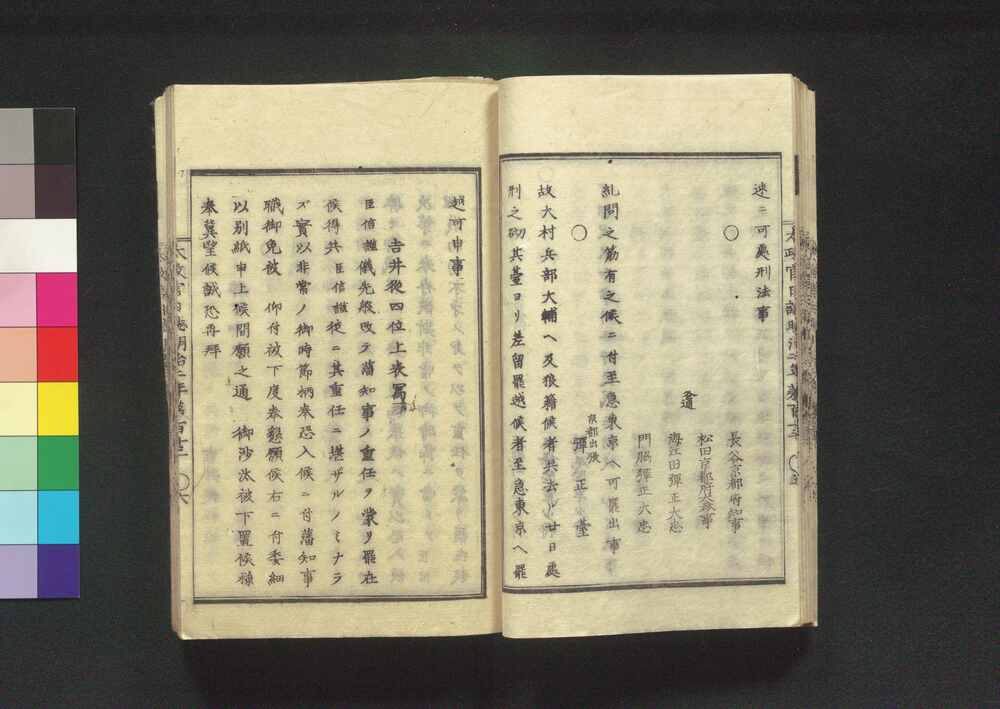 速ニ可處刑法事
○
長谷京都府知事
松田京都府大參事
海江田彈正大忠
門脇彈正大忠
糺問之筋有之候ニ付至急東京ヘ可罷出事
○
京都出張
彈正臺
故大村兵部大輔ヘ及狼藉候者共去ル廿日處
刑之砌其臺ヨリ差留罷越候者至急東京ヘ罷
越可申事
吉井從四位上表寫
臣信謹儀先般改テ藩知事ノ重任ヲ蒙リ罷在
候得共臣信謹徒ニ其重任ニ堪ザルノミナラ
ズ實以非常ノ御時節柄奉恐入候ニ付藩知事
職御免被 仰付被下度奉懇願候右ニ付委細
以別紙申上候間願之通 御沙汰被下置候樣
奉冀望候誠恐再拜
太政官日誌明治二年第百十二